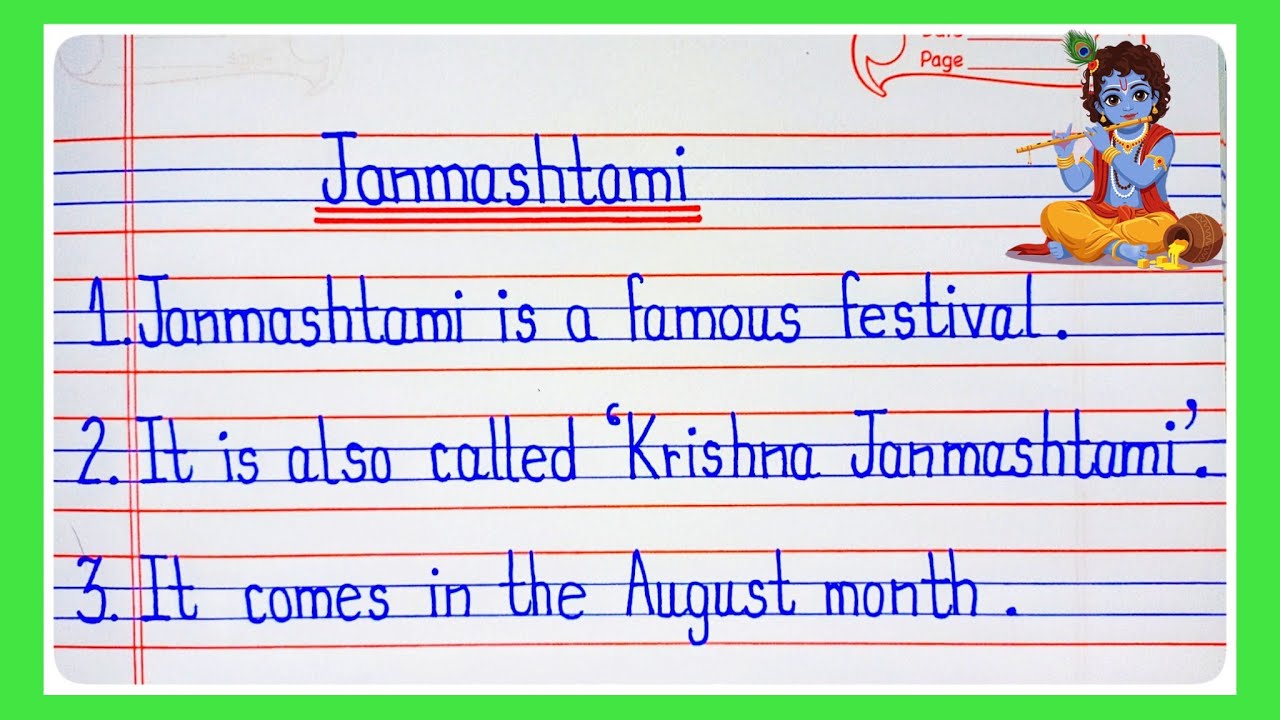 Page
Janmashtami
1. Janmashtami is a famous festival.
2. It is also called ‘Krishna Janmashtami’.
3. It comes in the August month.